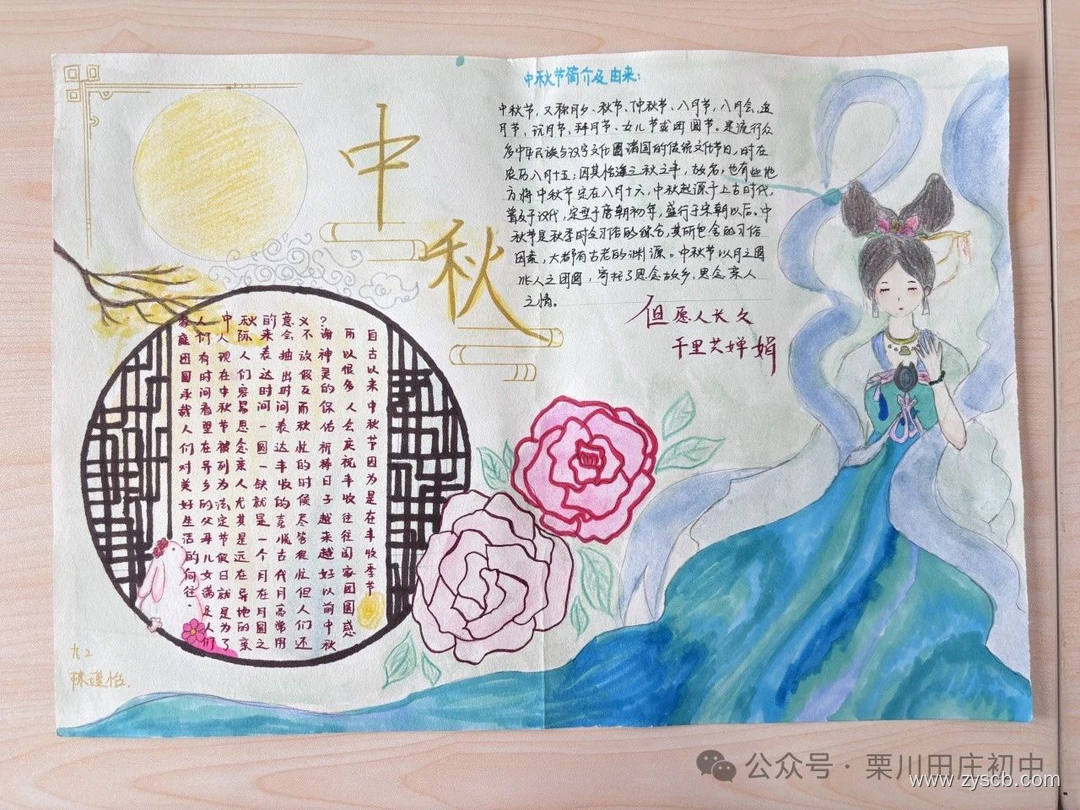 中秋
中秋节简介及由来:
中秋节,又称月夕、秋节、仲秋节、八月节,八月会、追
月节、玩月节、拜月节、女儿节或团圆节。是流行众
多中华民族与汉字文化圈诸国的传统文化节日,时在
农历八月十五;因其恰逢三秋之半,故名,也有些地
方将中秋节定在八月十六,中秋起源于上古时代,
普及于汉代,定型于唐朝初年,盛行于宋朝以后。中
秋节是秋季时令习俗的综合,其所包含的习俗
因素,大都有古老的渊源。中秋节以月之圆
兆人之团圆,寄托了思念故乡,思念亲人
之情。
但愿人长久
千里共婵娟
自古以来中秋节因为是在丰收季节
所以很多人会庆祝丰收往往阖家团圆感
谢神灵的保佑祈祷日子越来越好以前中秋
?
义不放假反而秋忙的时候尽管很忙但人们还
意会抽出时间表达丰收的喜悦古代月亮常用
的来表达时间一圆一缺就是一个月在月圆之
秋际人们容易思念亲人尤其是远在异地的亲
中人现在中秋节被列为法定节假日就是为了
人们有时间看望在异乡的父母儿女满足人们
家庭团圆承载人们对美好生活的向往.
九2
公众号·栗川田庄初中
www.zyscb.com